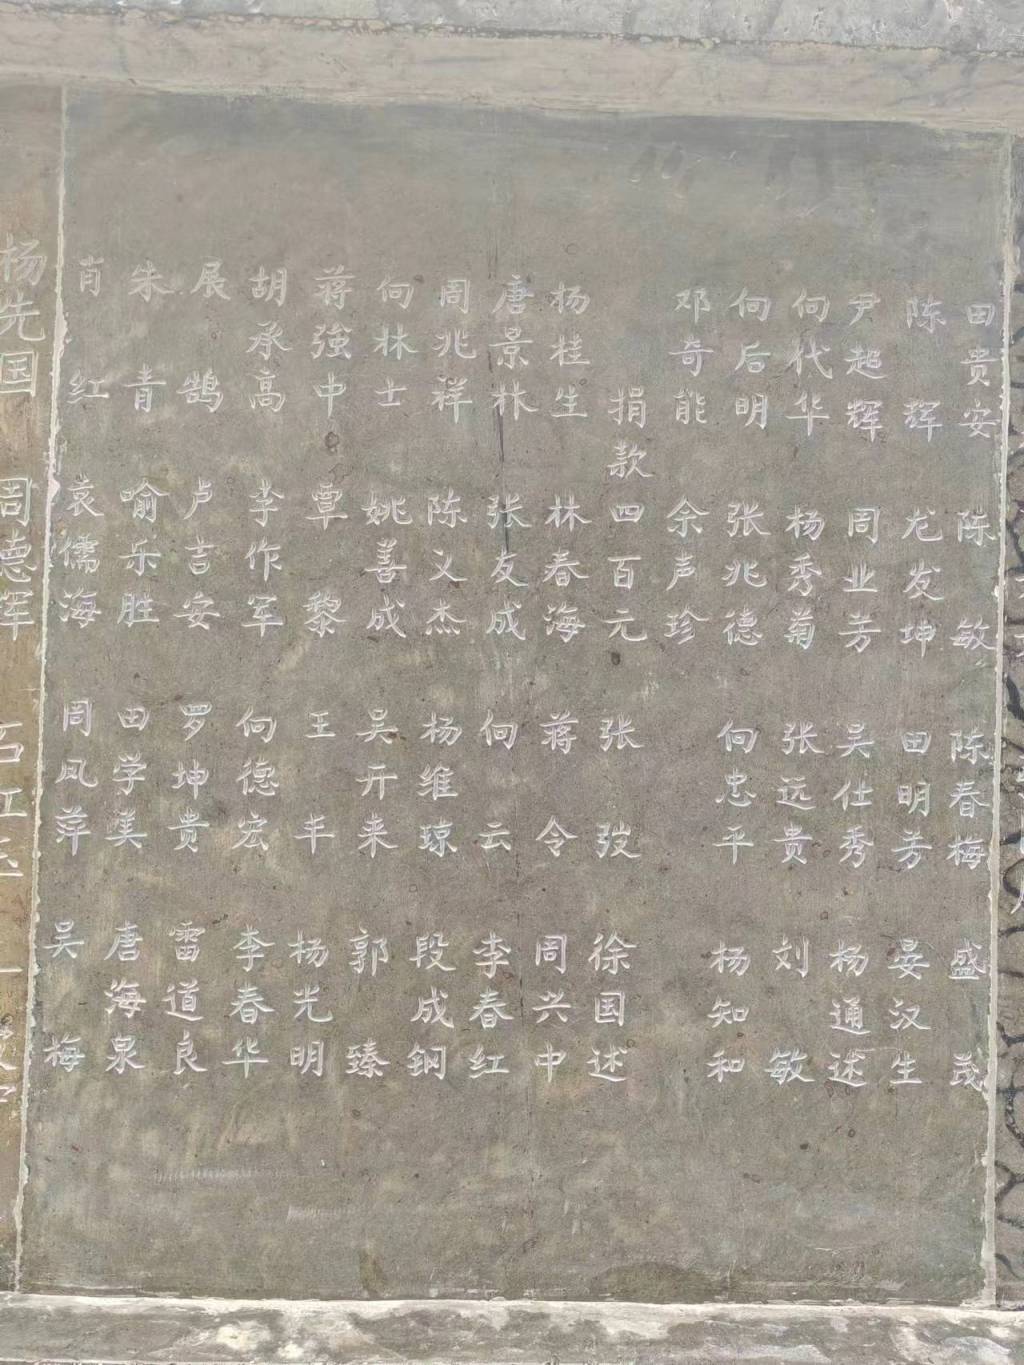 田贵安 陈敏 陈春梅 盛茂
陈辉 龙发坤 田明芳 晏汉生
尹超辉 周业芳 吴仕秀 杨通述
向代华 杨秀菊 张远贵 刘敏
向后明 张兆德 向忠平 杨知和
邓奇能 余声珍
捐款四百元 张弢 徐国述
杨桂生 林春海 蒋令 周兴中
唐景林 张友成 向云 李春红
周兆祥 陈义杰 杨维琼 段成钢
向林士 姚善成 吴开来 郭臻
蒋強中 覃黎 王芊 杨光明
胡承高 李作军 向德宏 李春华
展鹄 卢吉安 罗坤贵 雷道良
朱青 喻乐胜 田学美 唐海泉
肖红 袁儒海 周凤萍 吴梅
杨先国 周德辉